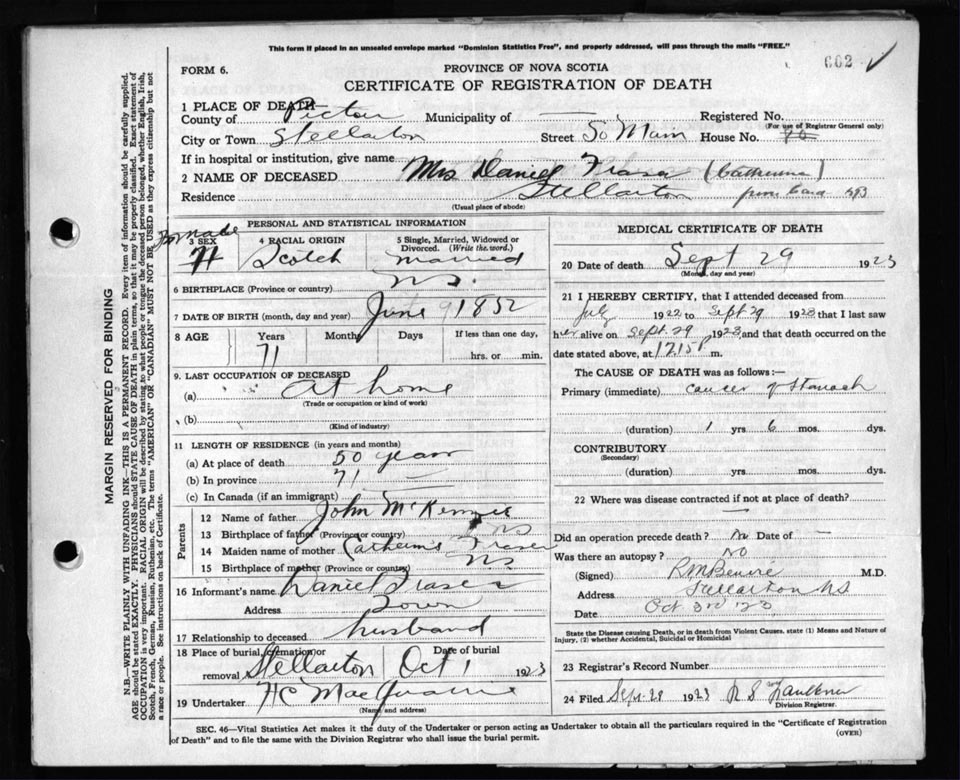 This form if placed in an unsealed envelope marked "Dominion Statistics Free", and properly addressed, will pass through the mails "FREE."
602 ✓
FORM 6.
PROVINCE OF NOVA SCOTIA
CERTIFICATE OF REGISTRATION OF DEATH
1 PLACE OF DEATH—
County of Pictou Municipality of — Registered No.
(For use of Registrar General only)
City or Town Stellarton Street So Main House No. 70
If in hospital or institution, give name
2 NAME OF DECEASED Mrs Daniel Fraser (Catherine)
Residence Stellarton from Card
(Usual place of abode)
PERSONAL AND STATISTICAL INFORMATION
Female
3 SEX
4 RACIAL ORIGIN
Scotch
5 Single, Married, Widowed or Divorced. (Write the word.)
Married
6 BIRTHPLACE (Province or country) N.S.
7 DATE OF BIRTH (month, day and year) June 9 1852
8 AGE Years Months Days If less than one day,
71 hrs. or min.
9. LAST OCCUPATION OF DECEASED
(a) At home
(Trade or occupation or kind of work)
(b)
(Kind of industry)
11 LENGTH OF RESIDENCE (in years and months)
(a) At place of death 50 years
(b) In province 71 —
(c) In Canada (if an immigrant)
Parents
12 Name of father John McKenzie
13 Birthplace of father (Province or country) NS
14 Maiden name of mother Catherine Fraser
15 Birthplace of mother (Province or country) N.S.
16 Informant's name Daniel Fraser
Address Town
17 Relationship to deceased husband
18 Place of burial, cremation or removal Stellarton
Date of burial
Oct 1 1923
19 Undertaker H C MacQuarrie
(Name and address)
MEDICAL CERTIFICATE OF DEATH
20 Date of death Sept 29 1923
(Month, day and year)
21 I HEREBY CERTIFY, that I attended deceased from
July 1922 to Sept 29 1923 that I last saw
her alive on Sept. 29 1923 and that death occurred on the
date stated above, at 12 15 P m.
The CAUSE OF DEATH was as follows:—
Primary (immediate) cancer of Stomach
(duration) 1 yrs 6 mos. dys.
CONTRIBUTORY
(Secondary)
(duration) yrs. mos. dys.
22 Where was disease contracted if not at place of death?
—
Did an operation precede death? No Date of —
Was there an autopsy? NO
(Signed) R M Benvie M.D.
Address Stellarton NS
Date Oct 3rd '23
State the Disease causing Death, or in death from Violent Causes, state (1) Means and Nature of Injury, (2) whether Accidental, Suicidal or Homicidal
23 Registrar's Record Number
24 Filed Sept. 28 1923 R S Faulkner
Division Registrar.
SEC. 46—Vital Statistics Act makes it the duty of the Undertaker or person acting as Undertaker to obtain all the particulars required in the "Certificate of Registration
of Death" and to file the same with the Division Registrar who shall issue the burial permit.
(OVER)
MARGIN RESERVED FOR BINDING
N.B.—WRITE PLAINLY WITH UNFADING INK—THIS IS A PERMANENT RECORD. Every item of information should be carefully supplied.
AGE should be stated EXACTLY. PHYSICIANS should STATE CAUSE OF DEATH in plain terms, so that it may be properly classified. Exact statement of
OCCUPATION is very important. RACIAL ORIGIN will be described by stating to what people or tongue the deceased person belonged, whether English, Irish,
Scotch, French, German, Russian, Ruthenian, etc. The terms "AMERICAN" or "CANADIAN" MUST NOT BE USED as they express citizenship but not
a race or people. See instructions on back of Certificate.